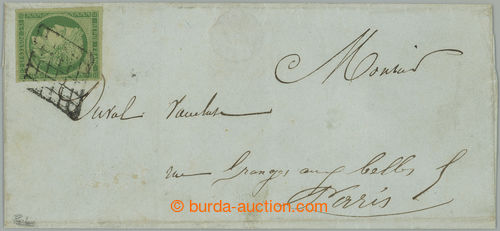 Monsieur
Duval Vaucluse
rue Granges aux belles 5
Parris
burda-auction.com